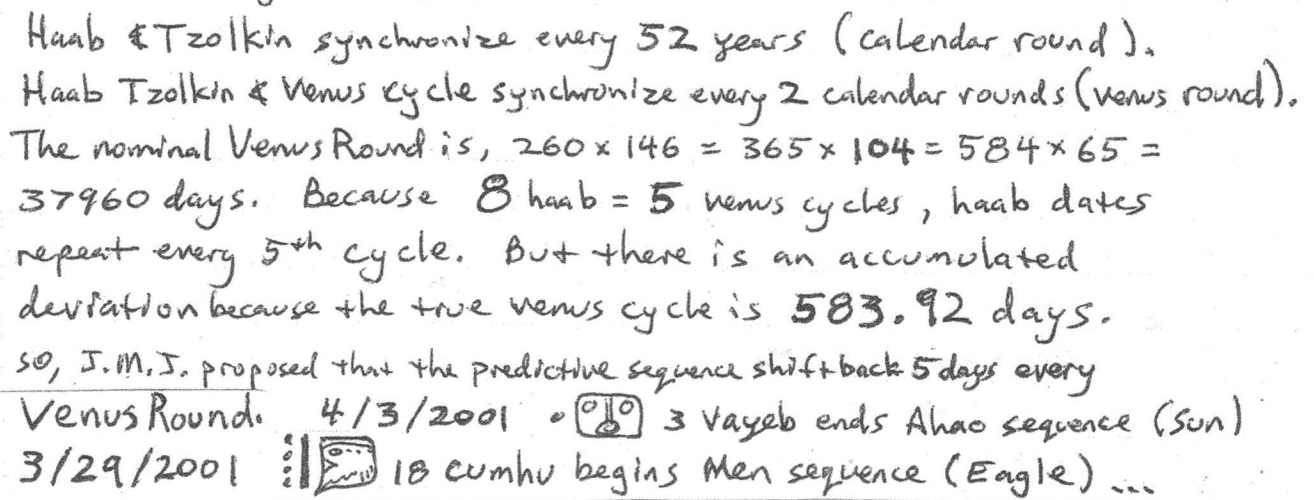 Haab & Tzolkin synchronize every 52 years (calendar round).
Haab Tzolkin & Venus cycle synchronize every 2 calendar rounds (venus round).
The nominal Venus Round is, 260 x 146 = 365 x 104 = 584 x 65 =
37960 days. Because 8 haab = 5 venus cycles, haab dates
repeat every 5th cycle. But there is an accumulated
deviation because the true venus cycle is 583.92 days.
so, J.M.J. proposed that the predictive sequence shift back 5 days every
Venus Round. 4/3/2001 3 Vayeb ends Ahao sequence (Sun)
3/29/2001 18 cumhu begins Men sequence (Eagle) ...